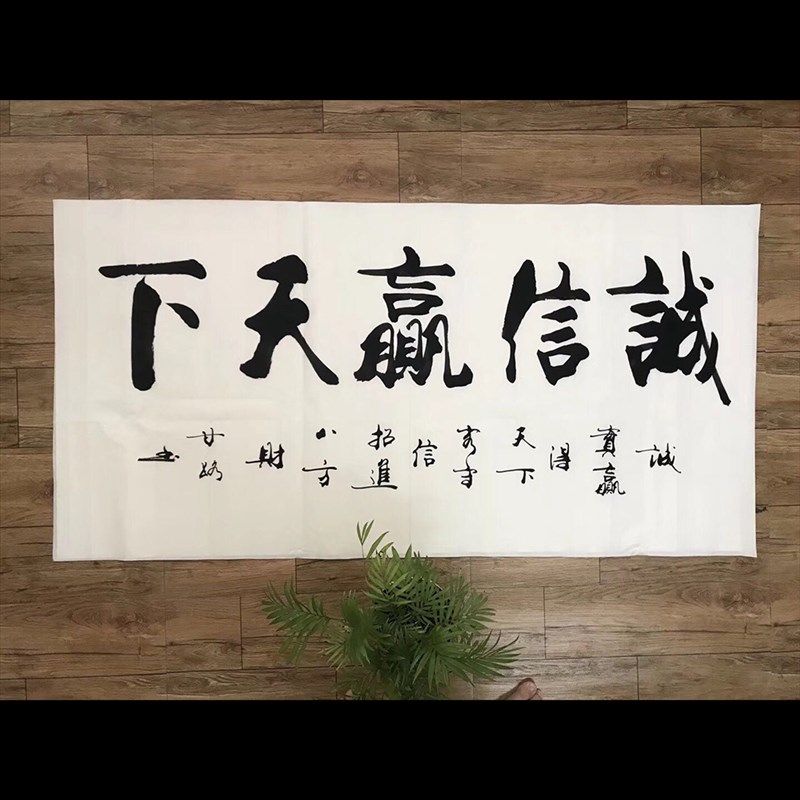 誠信贏天下
誠實贏得天下客守信招進八方財甘路书